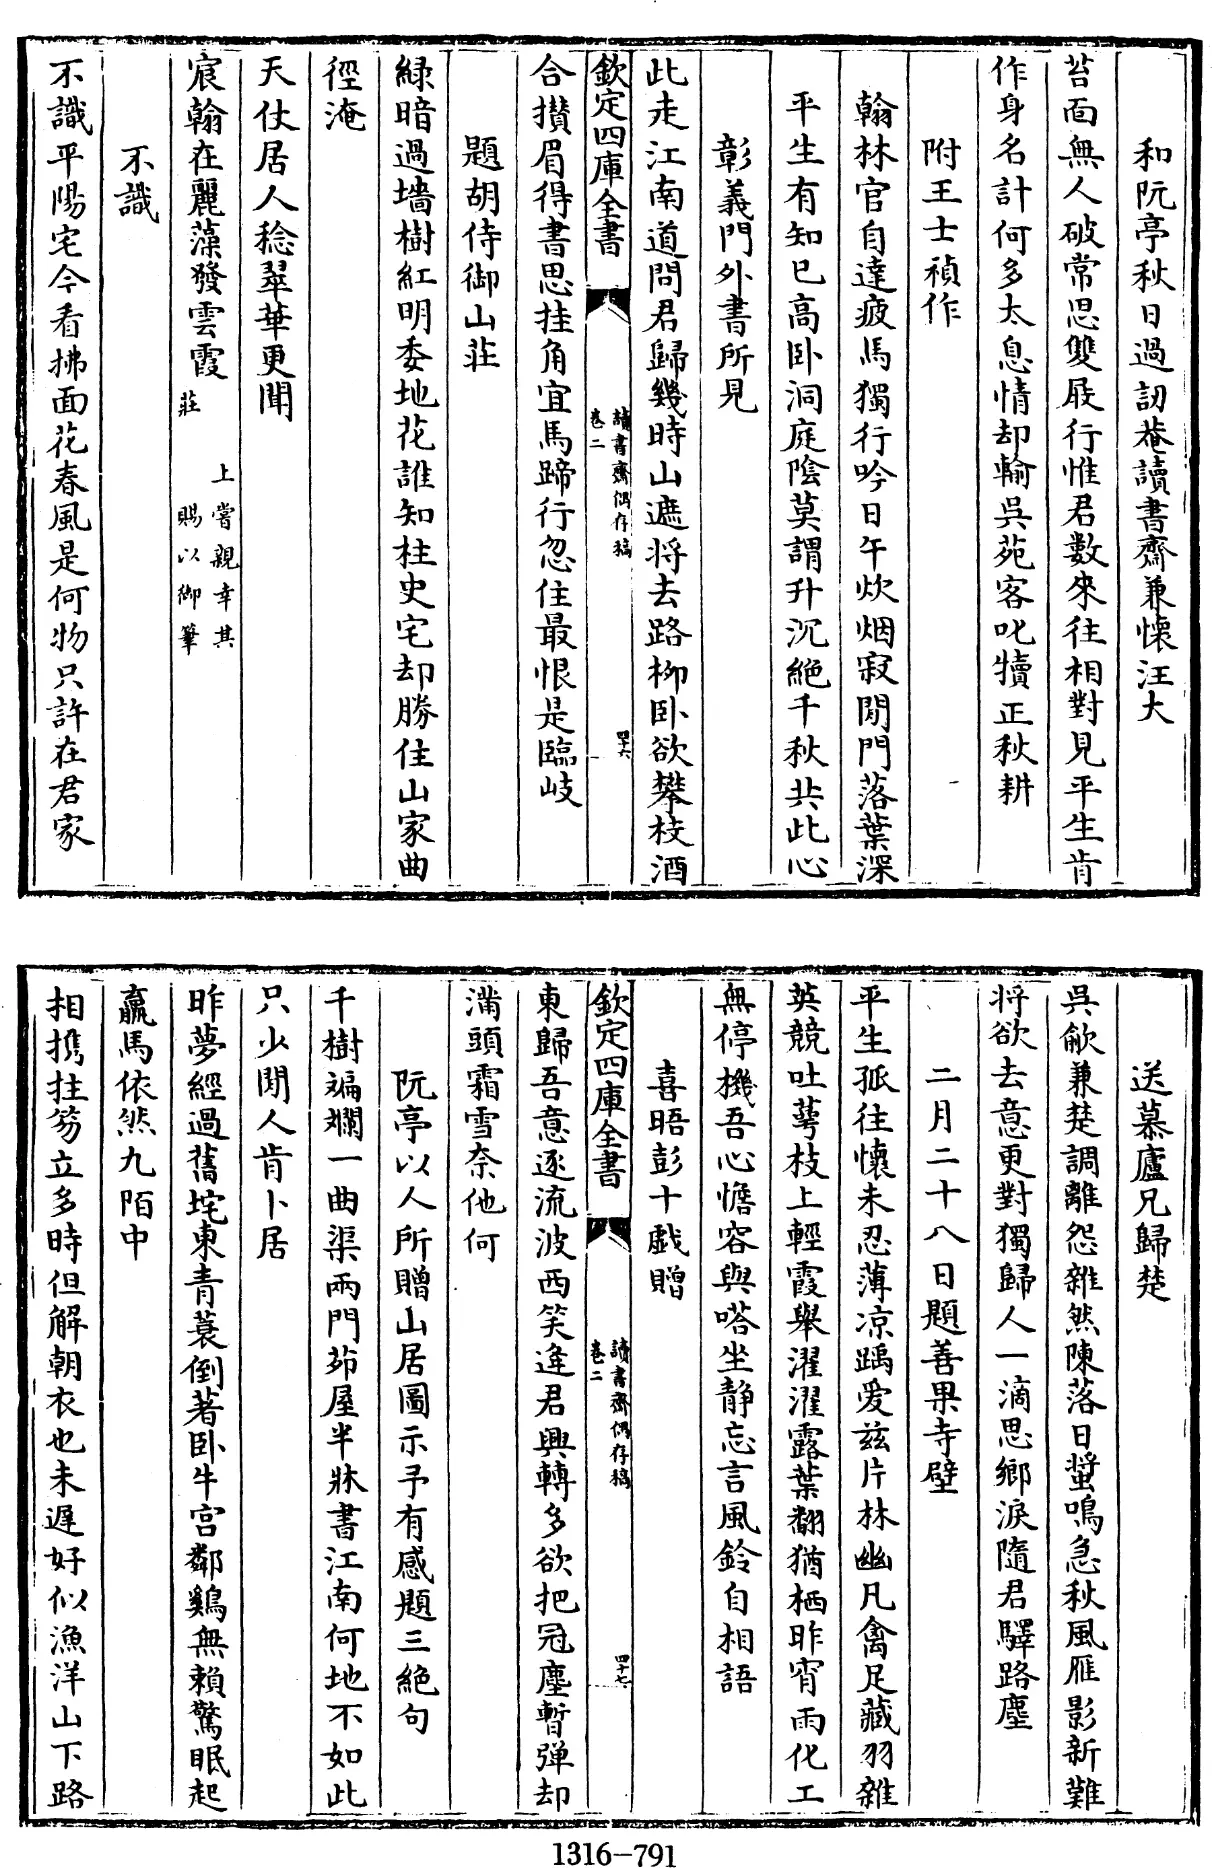 和阮亭秋日過訒菴讀書齋兼懷汪大
苔面無人破常思雙屐行惟君數來往相對見平生肯
作身名計何多太息情却輸吳苑客叱犢正秋耕
附王士禎作
翰林官自達疲馬獨行吟日午炊烟寂閒門落葉深
平生有知已高卧洞庭陰莫謂升沉絶千秋共此心
彰義門外書所見
此走江南道問君歸幾時山遮将去路柳卧欲攀枝酒
欽定四庫全書
讀書齋偶存稿
卷二
四十六
合攅眉得書思挂角宜馬蹄行忽住最恨是臨岐
題胡侍御山莊
緑暗過墻樹紅明委地花誰知柱史宅却勝住山家曲
徑淹
天仗居人稔翠華更聞
宸翰在麗藻發雲霞
上嘗親幸其
莊賜以御筆
不識
不識平陽宅今看拂面花春風是何物只許在君家
送慕廬兄歸楚
吳歈兼楚調離怨雜然陳落日蛩鳴急秋風雁影新難
将欲去意更對獨歸人一滴思鄉淚隨君驛路塵
二月二十八日題善果寺壁
平生孤往懷未忍薄凉踽爰兹片林幽凡禽足藏羽雜
英競吐萼枝上輕霞舉濯濯露葉翻猶栖昨宵雨化工
無停機吾心憺容與嗒坐静忘言風鈴自相語
喜晤彭十戲贈
欽定四庫全書
讀書齋偶存稿
卷二
四十七
東歸吾意逐流波西笑逢君興轉多欲把冠塵暫弹却
滿頭霜雪奈他何
阮亭以人所贈山居圖示予有感題三絶句
千樹斒斕一曲渠兩門茆屋半牀書江南何地不如此
只少閒人肯卜居
昨夢經過舊垞東青蓑倒著卧牛宫鄰鷄無賴驚眠起
羸馬依然九陌中
相携拄笏立多時但解朝衣也未遲好似漁洋山下路
1316-791